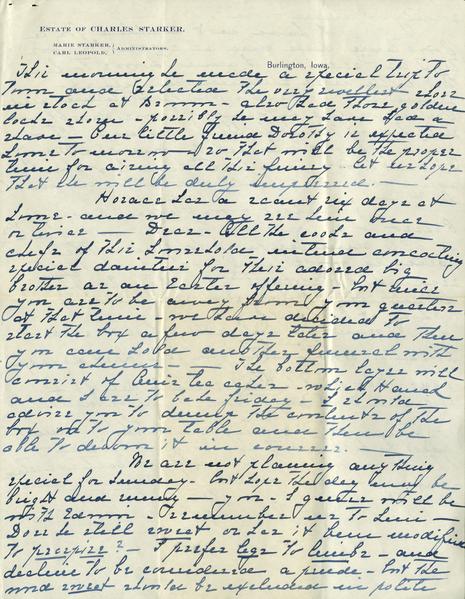 ESTATE OF CHARLES STARKER.
MARIE STARKER,
CARL LEOPOLD, } ADMINISTRATORS.
Burlington, Iowa,
This morning he made a special trip to
town and selected the very swellest store
in stock at Brown - also had those golden
locks shorn - possibly he may have had a
shave - Our little friend Dorothy is expected
home tomorrow - so that will be the proper
time for airing all this finery let us hope
that she will be duly impressed. -
Horace has a scant six days at
home - and we may see him once
or twice - Dear - All the cooks and
chefs of this household intend concocting
special dainties for their adored big
brother as an Easter offering but since
you are to be away from your quarters
at that time - we have decided to
start the box a few days later and then
you can hold another funeral with
your chums - - The bottom layer will
consist of
and I are to bake Friday - I should
advise you to dump the contents of the
box on to your table and then be
able to devour it in courses. -
We are not planning anything
special for Sunday - but hope the day may be
bright and sunny - you - I guess will be
with Edwin - Remember me to him -
Does he still sweat or has it been modified
to perspire? - I prefer legs to limbs - and
decline to be considered a prude - but the
word sweat should be excluded in polite